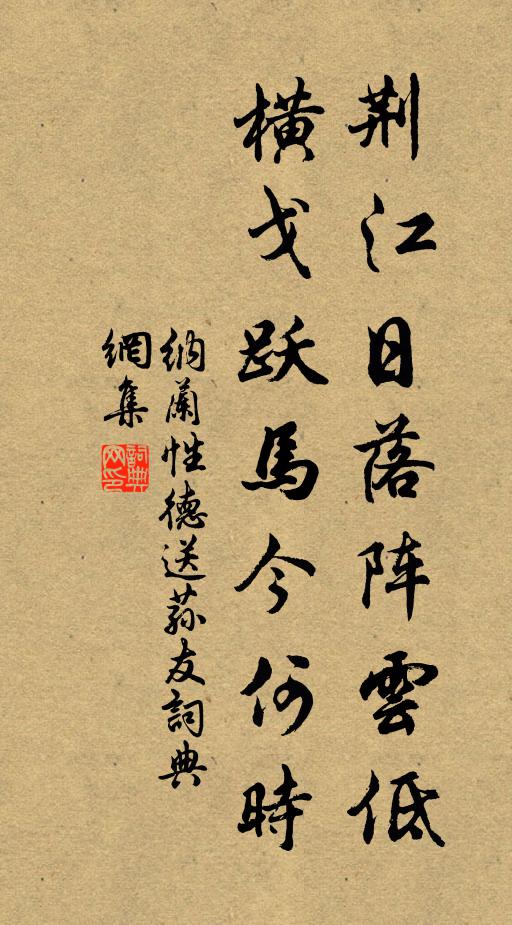 荆江日落阵雲低
橫戈跃馬今何時
纳蘭性德送荪友詞典
網集
詞典
网印